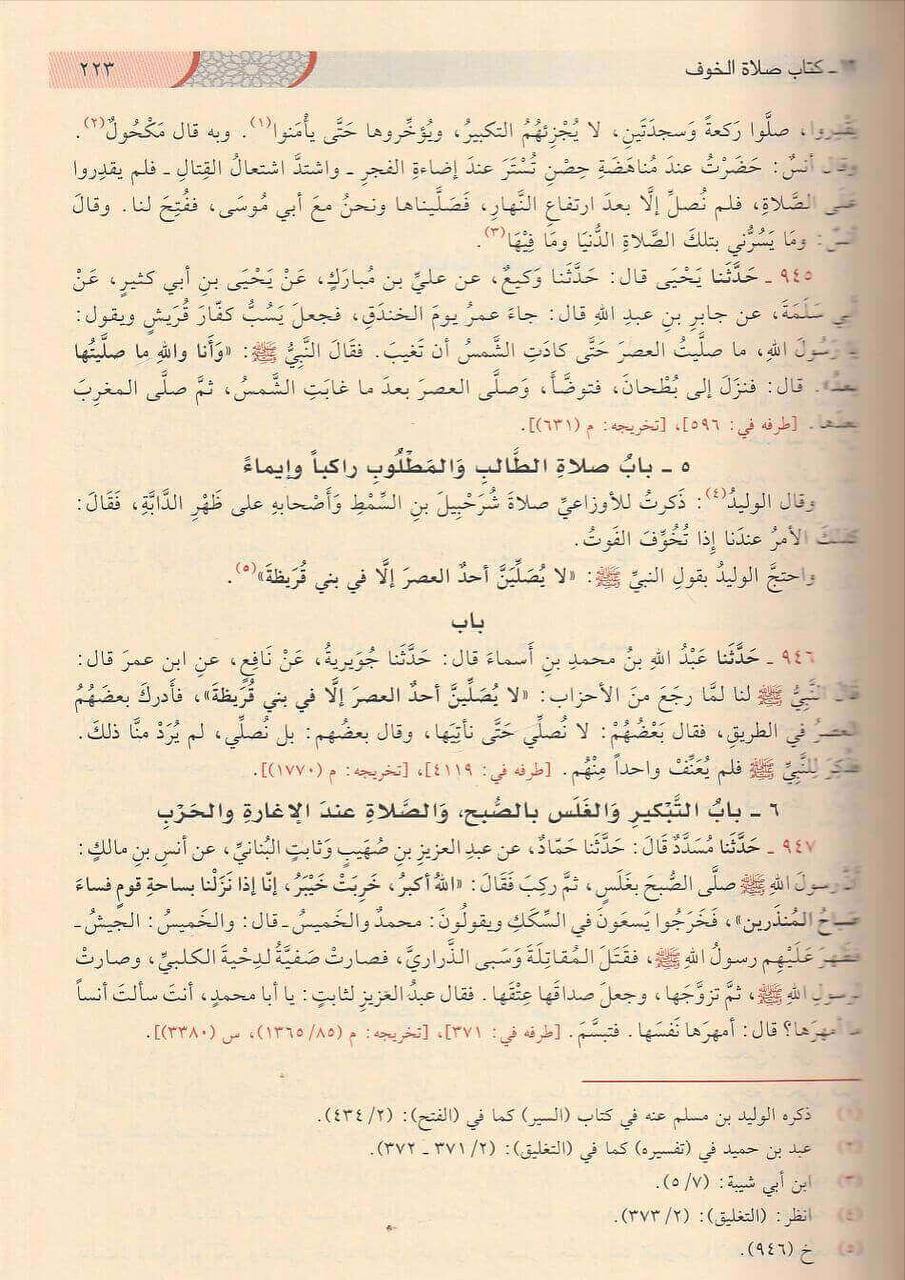 ١٢ ـ كتاب صلاة الخوف
٢٢٣
يَقْدِروا، صلَّوا رَكعةً وَسجدَتَينِ، لا يُجْزِئُهُمُ التكبيرُ، ويُؤخِّروها حَتَّى يأْمَنوا(١). وبه قال مَكْحُولٌ(٢).
وقال أنسٌ: حَضَرْتُ عندَ مُناهَضَةِ حِصْنِ تُسْتَرَ عندَ إضاءةِ الفجرِ ـ واشتدَّ اشتعالُ القِتالِ ـ فلم يقدِروا
عَلى الصَّلاةِ، فلم نُصلِّ إلَّا بعدَ ارتفاعِ النَّهارِ، فَصَلَّيناها ونحنُ معَ أبي مُوسَى، ففُتِحَ لنا. وقالَ
أنسٌ: ومَا يَسُرُّني بتلكَ الصَّلاةِ الدُّنيَا ومَا فِيْهَا(٣).
٩٤٥ ـ حَدَّثَنا يَحْيَى قال: حَدَّثَنا وَكيعٌ، عن عليِّ بن مُبارَكٍ، عَنْ يَحْيَى بنِ أبي كثيرٍ، عَنْ
أبي سَلَمَةَ، عن جابرِ بنِ عبدِ اللهِ قال: جاءَ عمرُ يومَ الخندَقِ، فجعلَ يَسُبُّ كفّارَ قُرَيشٍ ويقول:
يا رَسُولَ اللهِ، ما صلَّيتُ العصرَ حَتَّى كادَتِ الشَّمسُ أن تَغيبَ. فقَالَ النَّبِيُّ ﷺ: «وَأَنا واللهِ ما صلَّيتُها
بعدُ». قال: فنزَلَ إلى بُطْحانَ، فتوضَّأَ، وَصلَّى العصرَ بعدَ ما غابَتِ الشَّمسُ، ثمَّ صلَّى المغربَ
بعدَها. [طرفه في: ٥٩٦]، [تخريجه: م (٦٣١)].
٥ ـ بابُ صلاةِ الطَّالبِ وَالمَطْلُوبِ راكباً وإيماءً
وقال الوليدُ(٤): ذَكرتُ للأوزاعيِّ صلاةَ شُرَحْبِيلَ بنِ السِّمْطِ وَأصْحابهِ على ظَهْرِ الدَّابَّةِ، فَقَالَ:
كذلكَ الأمرُ عندَنا إذا تُخُوِّفَ الفَوتُ.
واحتجَّ الوليدُ بقولِ النبيِّ ﷺ: «لا يُصَلِّيَنَّ أحدٌ العصرَ إلَّا في بني قُرَيظةَ»(٥).
باب
٩٤٦ ـ حَدَّثَنا عَبْدُ اللهِ بنُ محمدِ بنِ أَسماءَ قال: حَدَّثَنا جُوَيرِيةُ، عَنْ نَافِعٍ، عَنِ ابن عمرَ قال:
قالَ النَّبِيُّ ﷺ لنا لمَّا رجَعَ منَ الأحزابِ: «لا يُصَلِّينَّ أحدٌ العصرَ إلَّا في بني قُرَيظةَ»، فأَدركَ بعضَهُمُ
العصرُ في الطريقِ، فقال بَعْضُهُمْ: لا نُصلِّي حَتَّى نأتيَها، وقال بعضُهم: بل نُصلِّي، لم يُرَدْ منَّا ذلكَ.
فذُكِرَ لِلنَّبِيِّ ﷺ فلم يُعَنِّفْ واحداً مِنْهُم. [طرفه في: ٤١١٩]، [تخريجه: م (١٧٧٠)].
٦ ـ بابُ التَّبْكيرِ وَالغَلَس بالصُّبح، وَالصَّلاةِ عندَ الإغارةِ والحَرْبِ
٩٤٧ ـ حَدَّثَنا مُسَدَّدٌ قَالَ: حَدَّثَنا حَمّادٌ، عن عبدِ العزيزِ بنِ صُهَيبٍ وَثابتٍ البُنانيِّ، عن أنسِ بنِ مالكٍ:
أنَّ رسولَ اللهِ ﷺ صلَّى الصُّبحَ بغَلَسٍ، ثم رَكِبَ فَقَالَ: «اللهُ أكبرُ، خَرِبَتْ خَيْبَرُ، إنّا إذا نَزَلْنا بساحةِ قومٍ فساءَ
صَباحُ المُنذَرين»، فَخَرَجُوا يَسعَونَ في السِّكَكِ ويقولُونَ: محمدٌ والخَميسُ ـ قال: والخَميسُ: الجيشُ ـ
فظهَرَ عَلَيْهِم رسولُ اللهِ ﷺ، فقَتَلَ المُقاتِلَةَ وَسَبى الذَّراريَّ، فصارتْ صَفيَّةُ لدِحْيةَ الكلبيِّ، وصارتْ
لرسولِ اللهِ ﷺ، ثمَّ تزوَّجَها، وجعلَ صداقَها عِتْقَها. فقال عبدُ العزيز لثابتٍ: يا أبا محمدٍ، أنتَ سألتَ أنساً
ما أمهرَها؟ قال: أمهرَها نَفْسَها. فتبسَّمَ. [طرفه في: ٣٧١]، [تخريجه: م (١٣٦٥/٨٥)، س (٣٣٨٠)].
(١) ذكره الوليد بن مسلم عنه في كتاب (السير) كما في (الفتح): (٤٣٤/٢).
(٢) عبد بن حميد في (تفسيره) كما في (التغليق): (٣٧١/٢ ـ ٣٧٢).
(٣) ابن أبي شيبة: (٥/٧).
(٤) انظر: (التغليق): (٣٧٣/٢).
(٥) خ (٩٤٦).